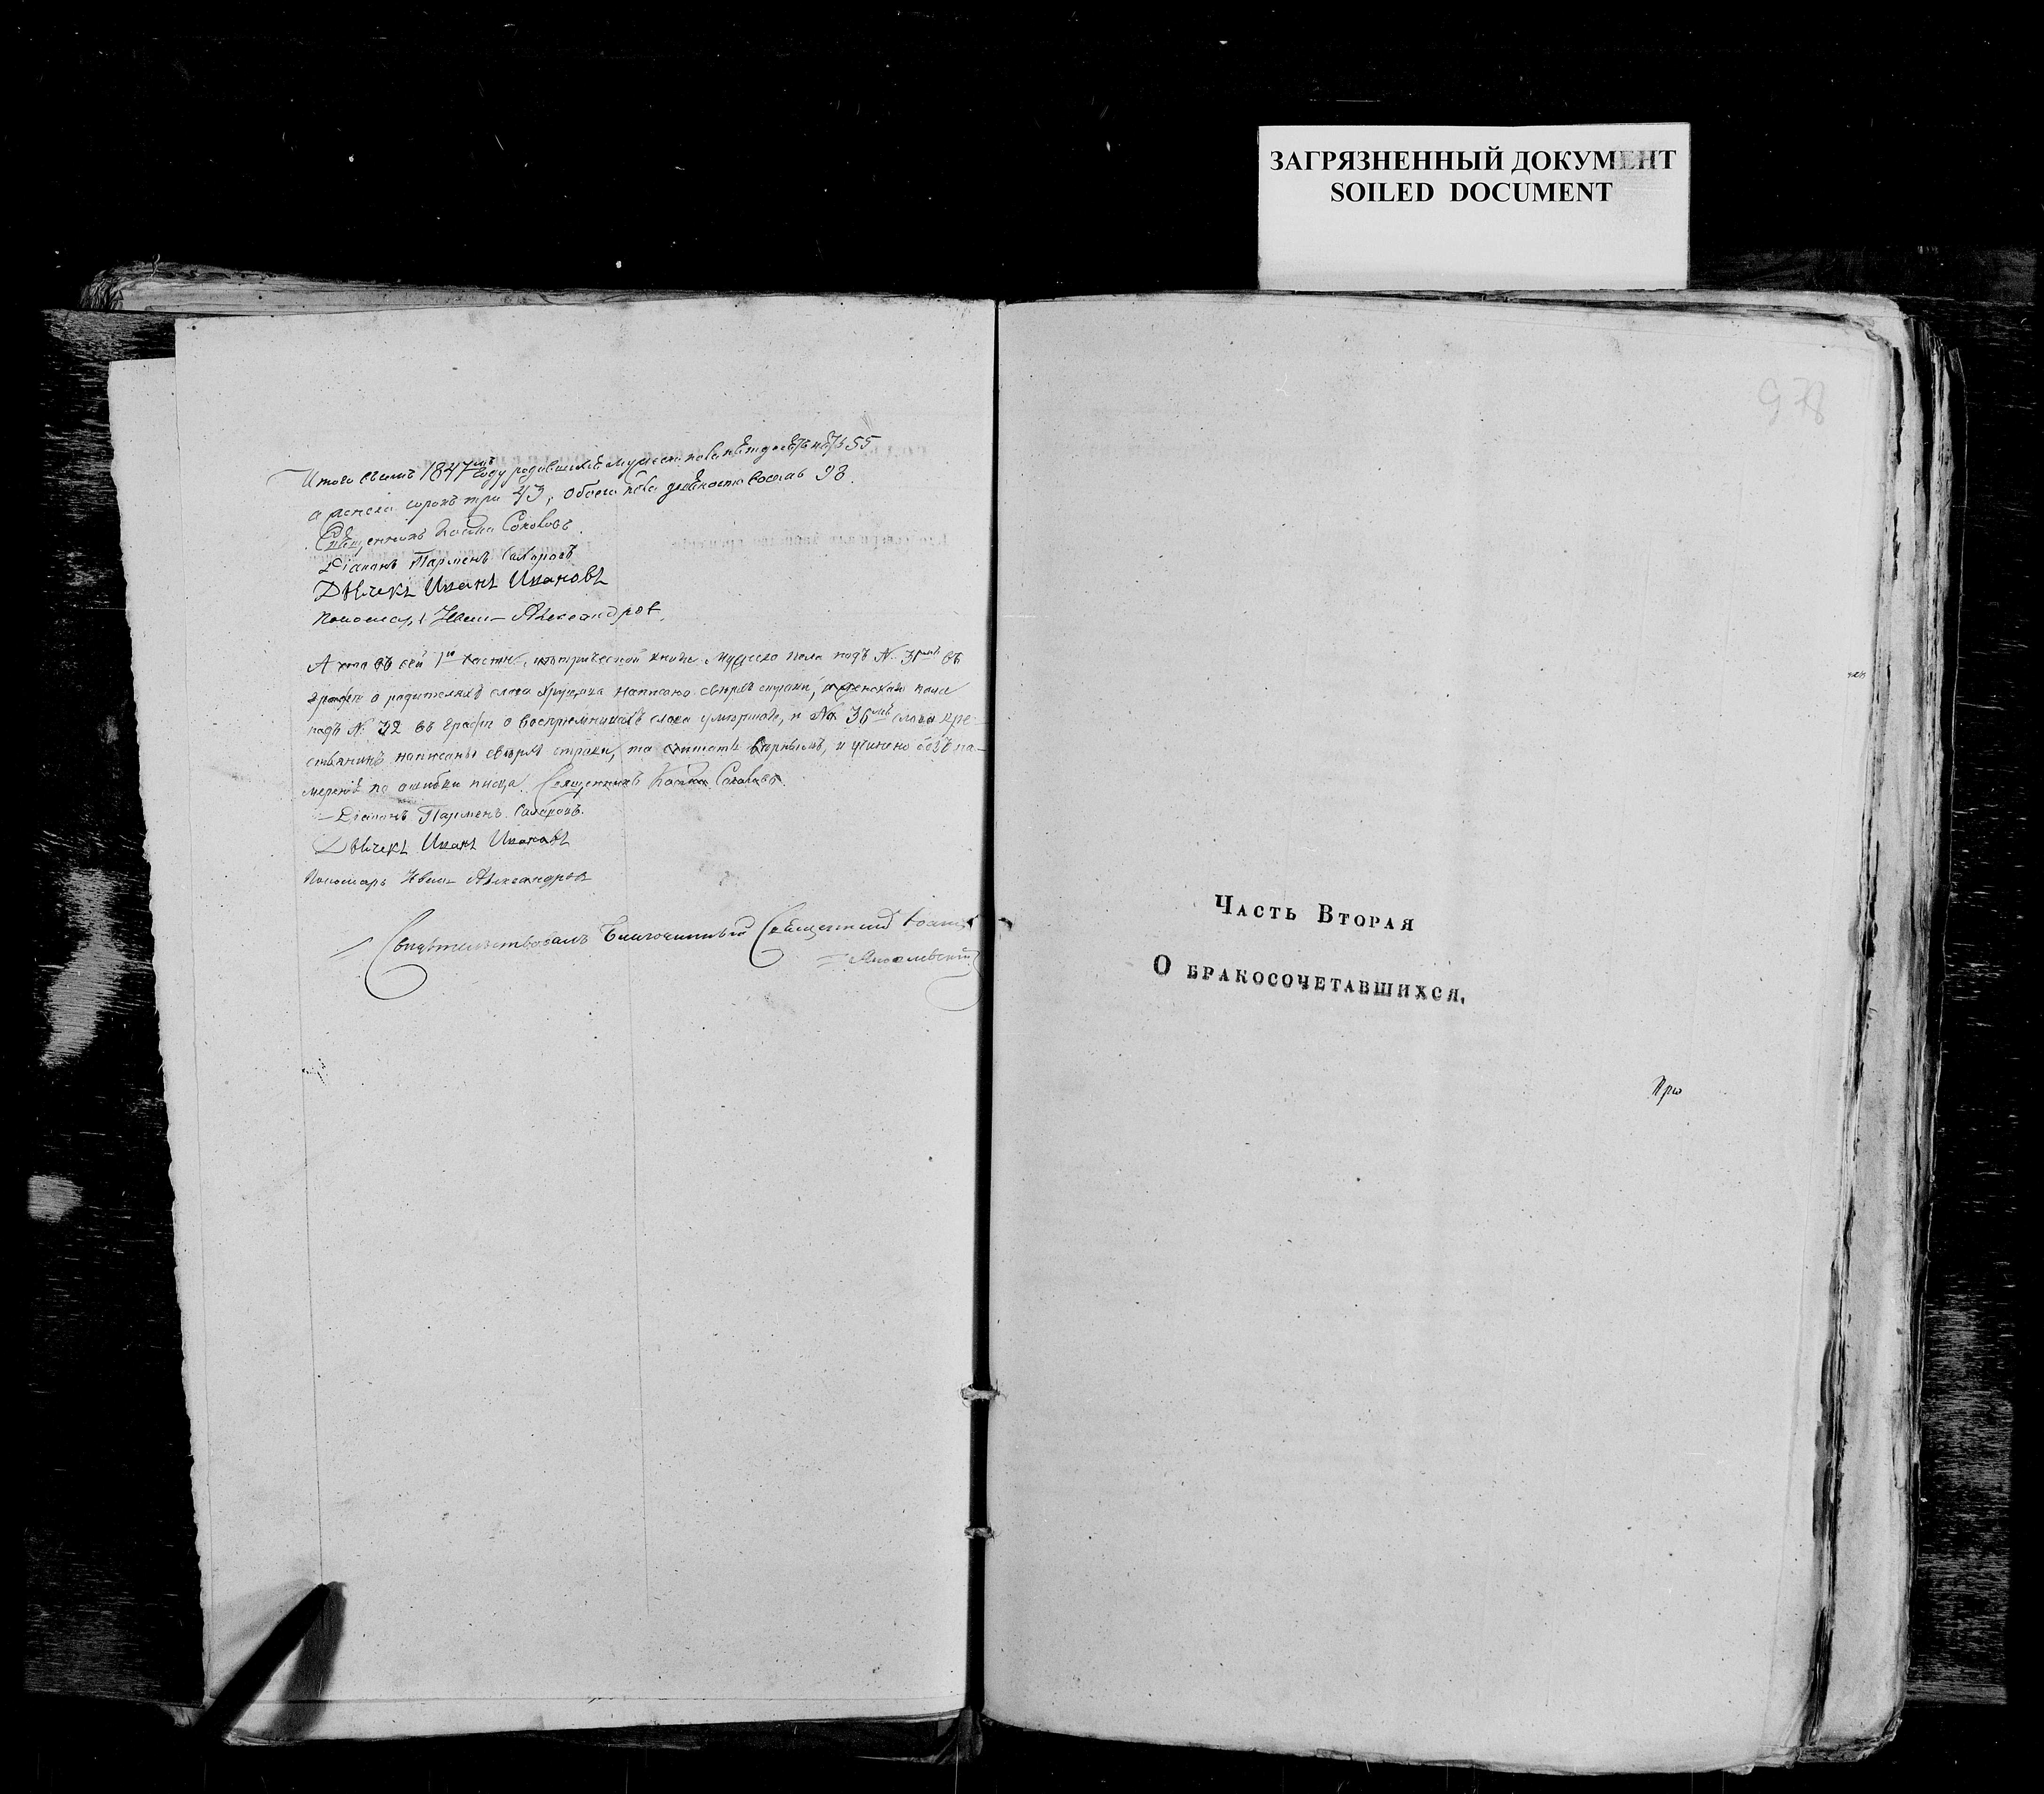 ЗАГРЯЗНЕННЫЙ ДОКУМЕНТ
SOILED DOCUMENT
978
Итого въ семъ 1847мъ году родившихся мужеска пола пятьдесятъ пять 55
а женска сорокъ три 43, обоего пола девяносто восемь 98.
Священникъ Косма Соколовъ.
Діаконъ Парменъ
Дьячекъ Иванъ Ивановъ
Пономарь Иванъ Александров
А что въ сей 1й части метрической книги мужеска пола подъ № 31мъ въ
графѣ о родителяхъ слова написано сверхъ строки, а женскаго пола
подъ № 32 въ графѣ о воспріемникахъ слова и № 36мъ слова кре-
стьянинъ написаны сверхъ строки, то считать вѣрнымъ, и учинено безъ на-
меренія по ошибки писца. Священникъ Косма Соколовъ.
Діаконъ Парменъ
Дьячекъ Иванъ Ивановъ
Пономарь Иванъ Александров
Свидѣтельствовалъ Благочинный Священникъ Іоаннъ
Часть Вторая
О бракосочетавшихся.
При